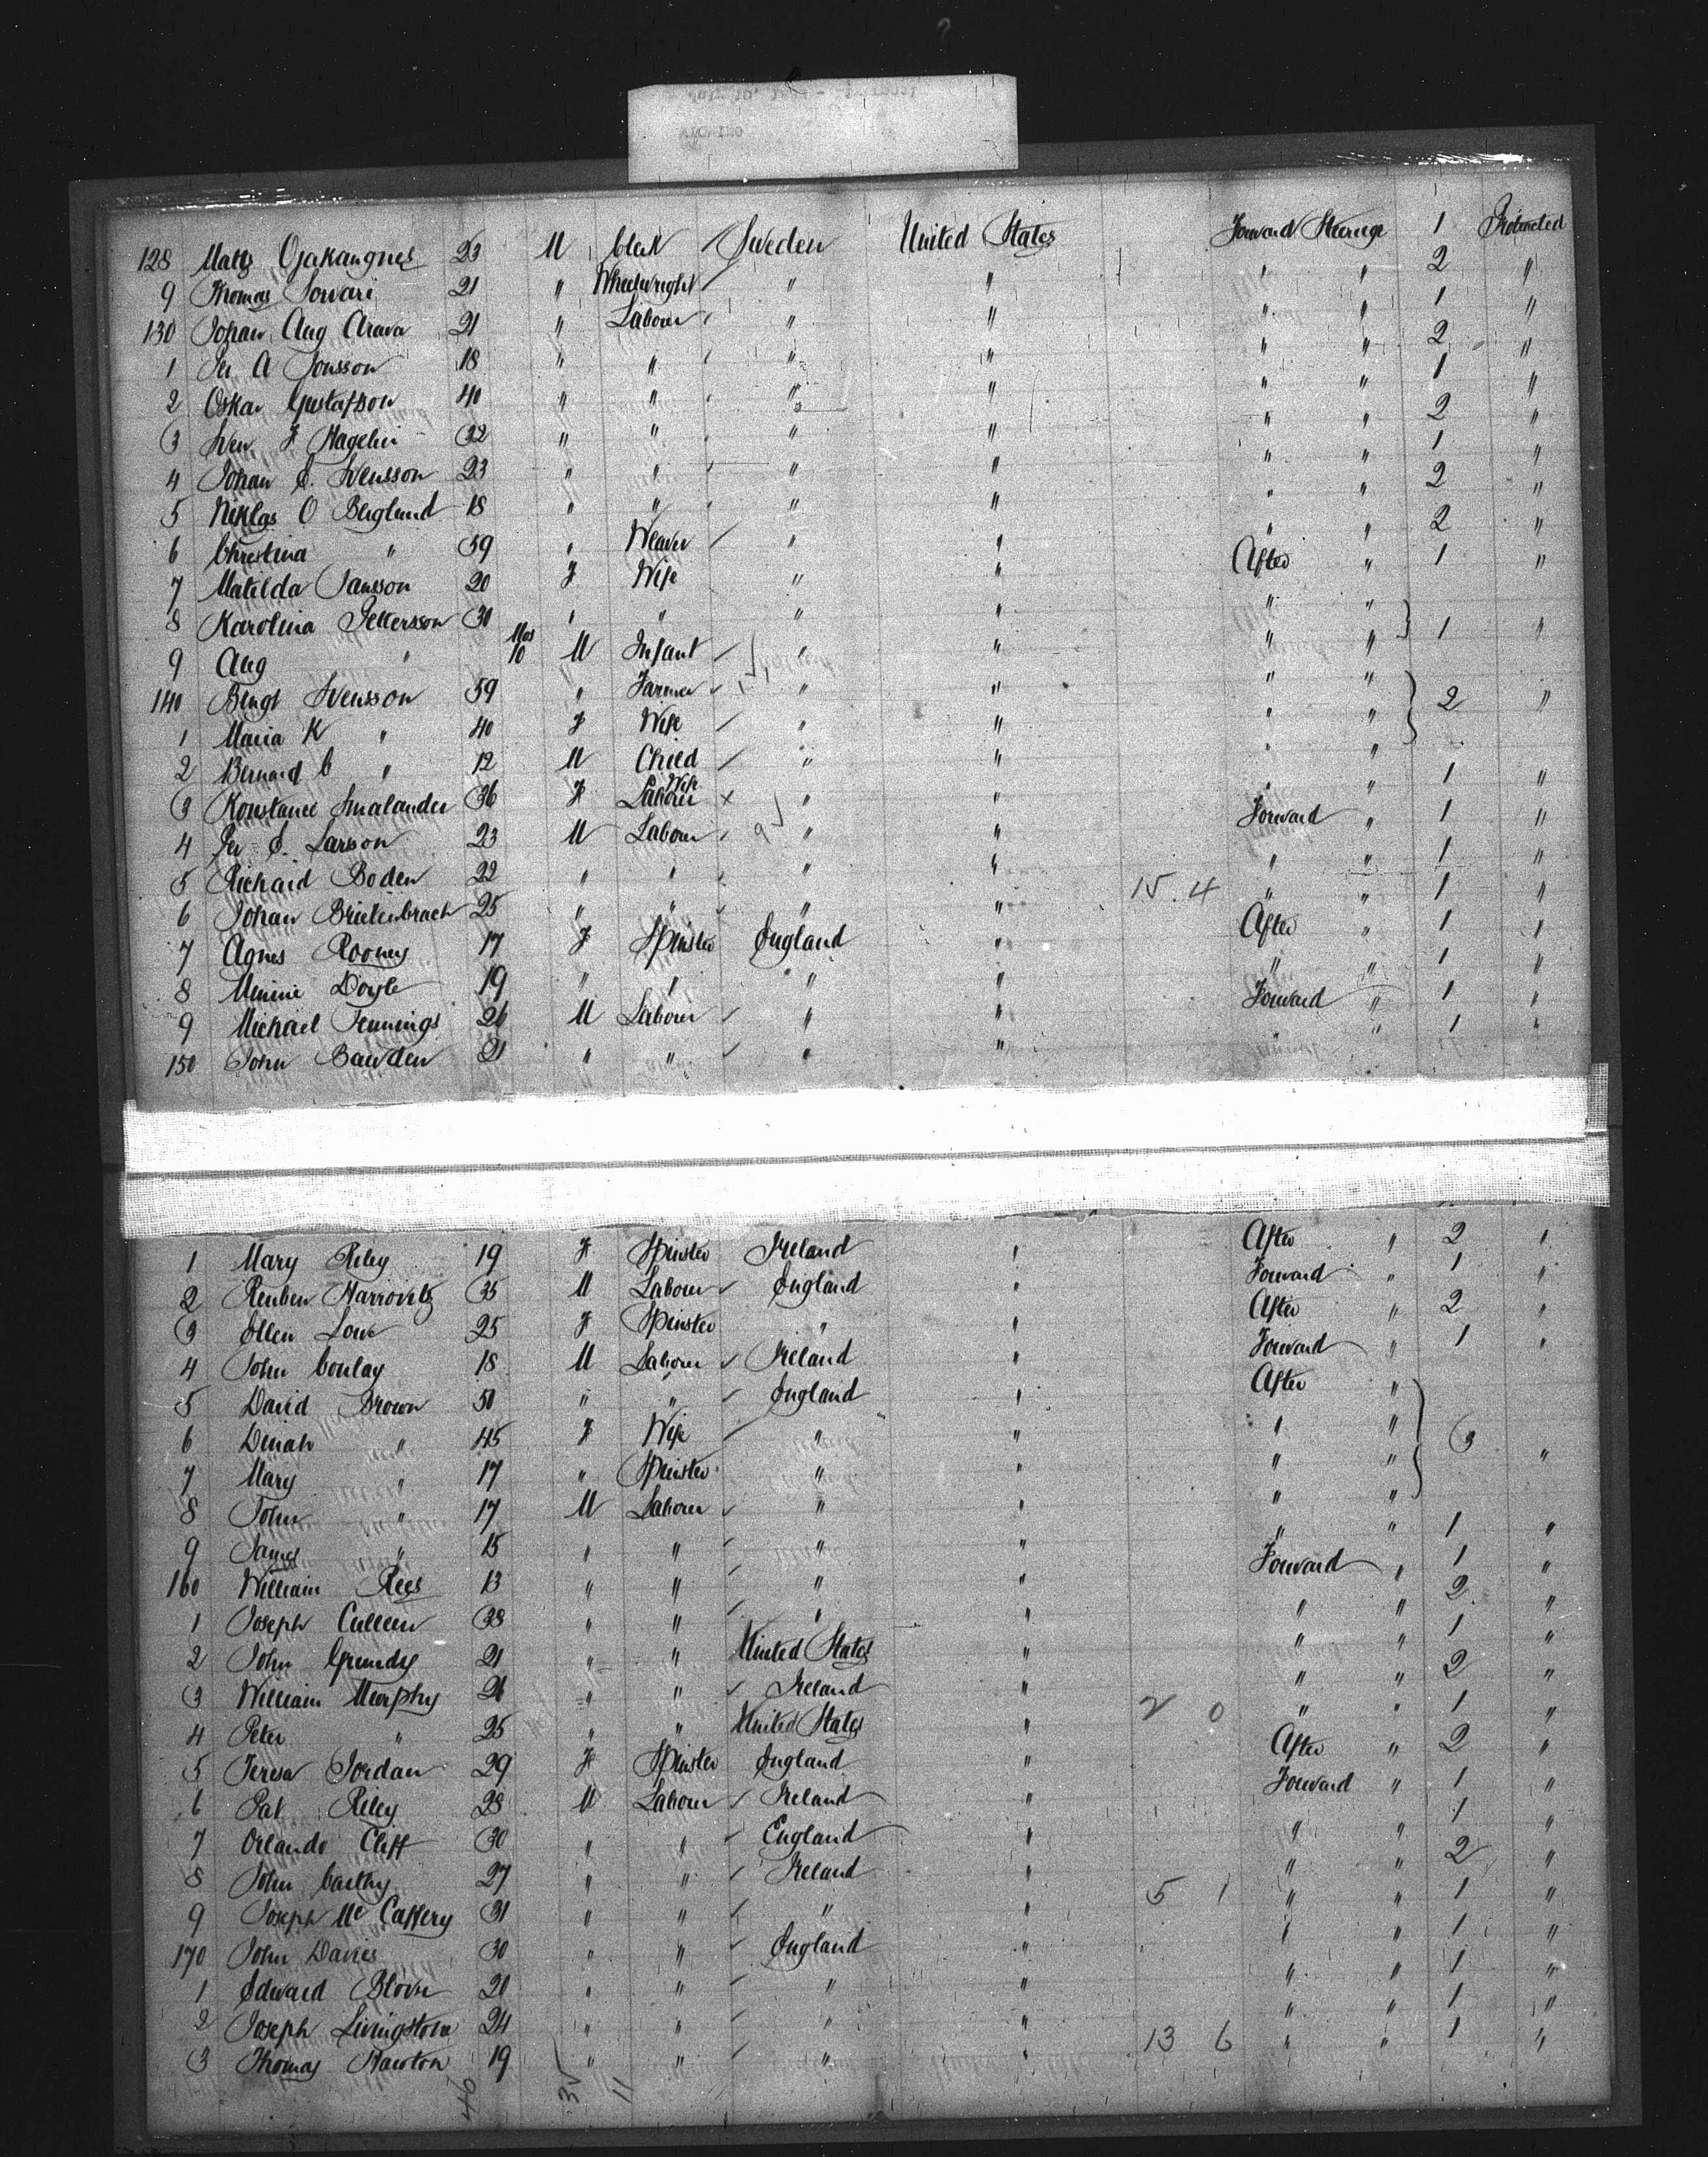 128 Matts Ojakangnes 23 M Clerk Sweden United States Forward Steerage 1 Protracted
9 Thomas Sorvari 21 " Wheelwright " " " " 2 "
130 Johan Aug Arava 21 " Labour " " " " 1 "
1 Per A Jonsson 18 " " " " " " 2 "
2 Oskar Gustafson 40 " " " " " " 1 "
3 Sven F Hagelin 32 " " " " " " 2 "
4 Johan E. Svensson 23 " " " " " " 1 "
5 Niklas O Berglund 18 " " " " " " 2 "
6 Christina " 59 " Weaver " " " " 2 "
7 Matilda Jansson 20 F Wife " " After " 1 "
8 Karolina Pettersson 30 " " " " " "
9 Aug " Mos 10 M Infant " " " " 1 "
140 Bengt Svensson 59 " Farmer " " " "
1 Maria K " 40 F Wife " " " " 2 "
2 Bernard C " 12 M Child " " " "
3 Konstance Smalander 36 F Labour Wife x " " " " 1 "
4 Per E. Larsson 23 M Labour " " Forward " 1 "
5 Richard Boden 22 " " " " " " 1 "
6 Johan 25 " " " " 15.4 " " 1 "
7 Agnes Rooney 17 F Spinster England " After " 1 "
8 Minnie Doyle 19 " " " " " " 1 "
9 Michael Jennings 26 M Labour " " Forward " 1 "
150 John Bawden 21 " " " " " " 1 "
1 Mary Riley 19 F Spinster Ireland " After " 2 "
2 Reuben Harrovitz 35 M Labour England " Forward " 1 "
3 Ellen Lowe 25 F Spinster " " After " 2 "
4 John Conlay 18 M Labour Ireland " Forward " 1 "
5 David Brown 50 " " England " After "
6 Dinah " 45 F Wife " " " " 3 "
7 Mary " 17 " Spinster " " " "
8 John " 17 M Labour " " " "
9 James " 15 " " " " " " 1 "
160 William Rees 13 " " " " Forward " 1 "
1 Joseph Cullen 38 " " " " " " 2 "
2 John Grundy 21 " " United States " " " 1 "
3 William Murphy 26 " " Ireland " " " 2 "
4 Peter " 25 " " United States " 2 0 " " 1 "
5 Teresa Jordan 29 F Spinster England " After " 2 "
6 Pat Riley 28 M Labour Ireland " Forward " 1 "
7 Orlando Cliff 30 " " England " " " 1 "
8 John Carthy 27 " " Ireland " " " 2 "
9 Joseph Mc Caffery 31 " " " " 5 1 " " 1 "
170 John Davies 30 " " England " " " 1 "
1 Edward 20 " " " " " " 1 "
2 Joseph Livingstone 24 " " " " " " 1 "
3 Thomas 19 " " " " 13 6 " " 1 "
46 3 11